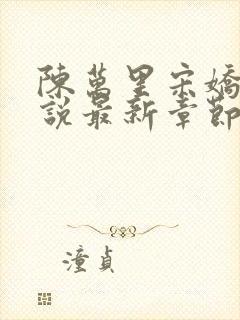 陳萬里宋嬌
說最新章節
潼貞